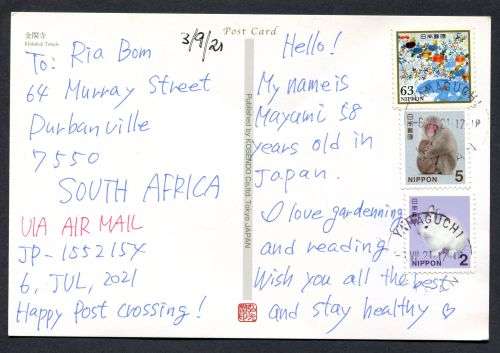 金閣寺
Kinkaku Temple
Post Card
3/9/21
To: Ria Bom
64 Murray Street
Durbanville
7550
SOUTH AFRICA
VIA AIR MAIL
JP-1552154
6, JUL, 2021
Happy Post crossing!
Published by KOSENDO Co.ltd. Tokyo JAPAN
Hello!
My name is
Mayumi 58
years old in
Japan.
I love gardenning
and reading.
Wish you all the best
and stay healthy ♡
日本郵便
63
NIPPON
YAMAGUCHI
日本郵便
5
NIPPON
YAMAGUCHI
日本郵便
NIPPON 2